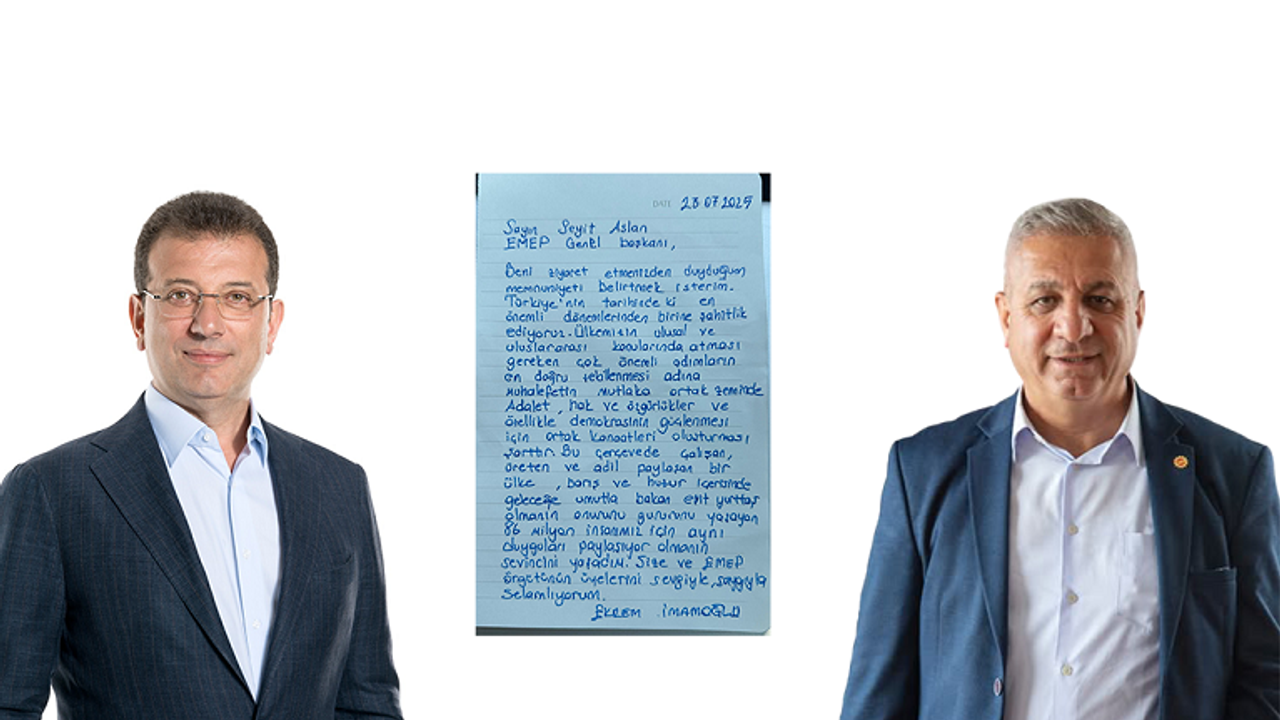 DATE 28 07 2025
Sayın Seyit Aslan
EMEP Genel başkanı,
Beni ziyaret etmenizden duyduğum
memnuniyeti belirtmek isterim.
Türkiye'nin tarihinde ki en
önemli dönemlerinden birine şahitlik
ediyoruz. Ülkemizin ulusal ve
uluslararası konularında atması
gereken çok önemli adımların
en doğru şekillenmesi adına
muhalefetin mutlaka ortak zeminde
Adalet, hak ve özgürlükler ve
özellikle demokrasinin güçlenmesi
için ortak kanaatleri oluşturması
şarttır. Bu çerçevede çalışan,
üreten ve adil paylaşan bir
ülke, barış ve huzur içerisinde
geleceğe umutla bakan eşit yurttaş
olmanın onurunu gururunu yaşayan
86 milyon insanımız için aynı
duyguları paylaşıyor olmanın
sevincini yaşadım. Size ve EMEP
örgütünün üyelerini sevgiyle, saygıyla
selamlıyorum.
EKREM İMAMOĞLU